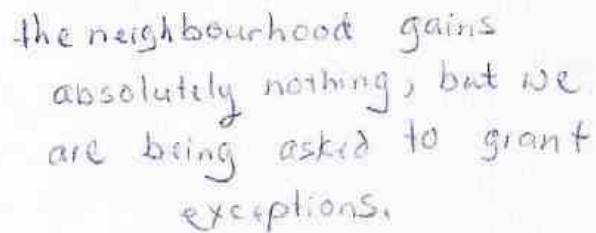 the neighbourhood gains
absolutely nothing, but we
are being asked to grant
exceptions.